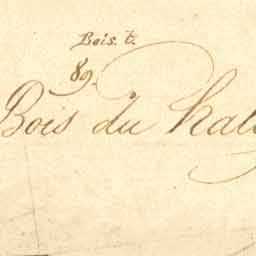 Bois. t.
89.
Bois du Hal